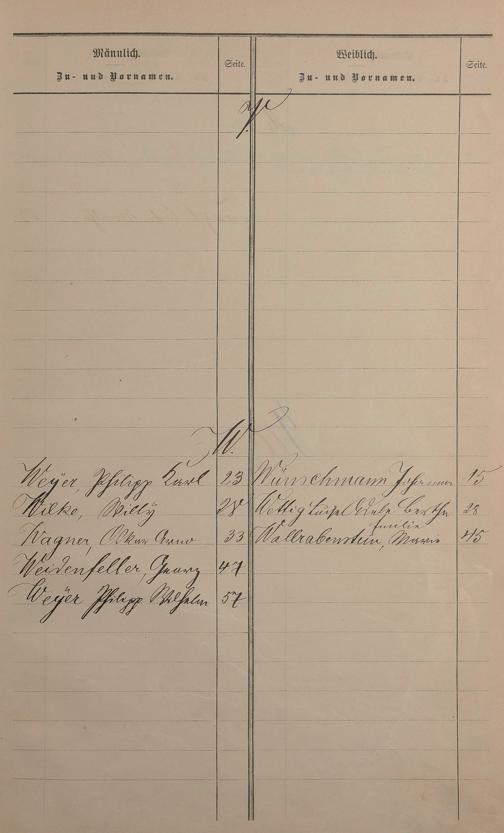 Männlich.
Zu- und Vornamen.
Seite.
Weiblich.
Zu- und Vornamen.
Seite.
V.
W.
Weyer, Philipp Karl 23
Wünschmann Johanna 15
Wilke, Willy 28
Wettig Luise Adele Bertha 28
Wagner, Oskar Arno 33
Emilie
Wallrabenstein, Marie 45
Weidenfeller Georg 47
Weyer Philipp Wilhelm 57